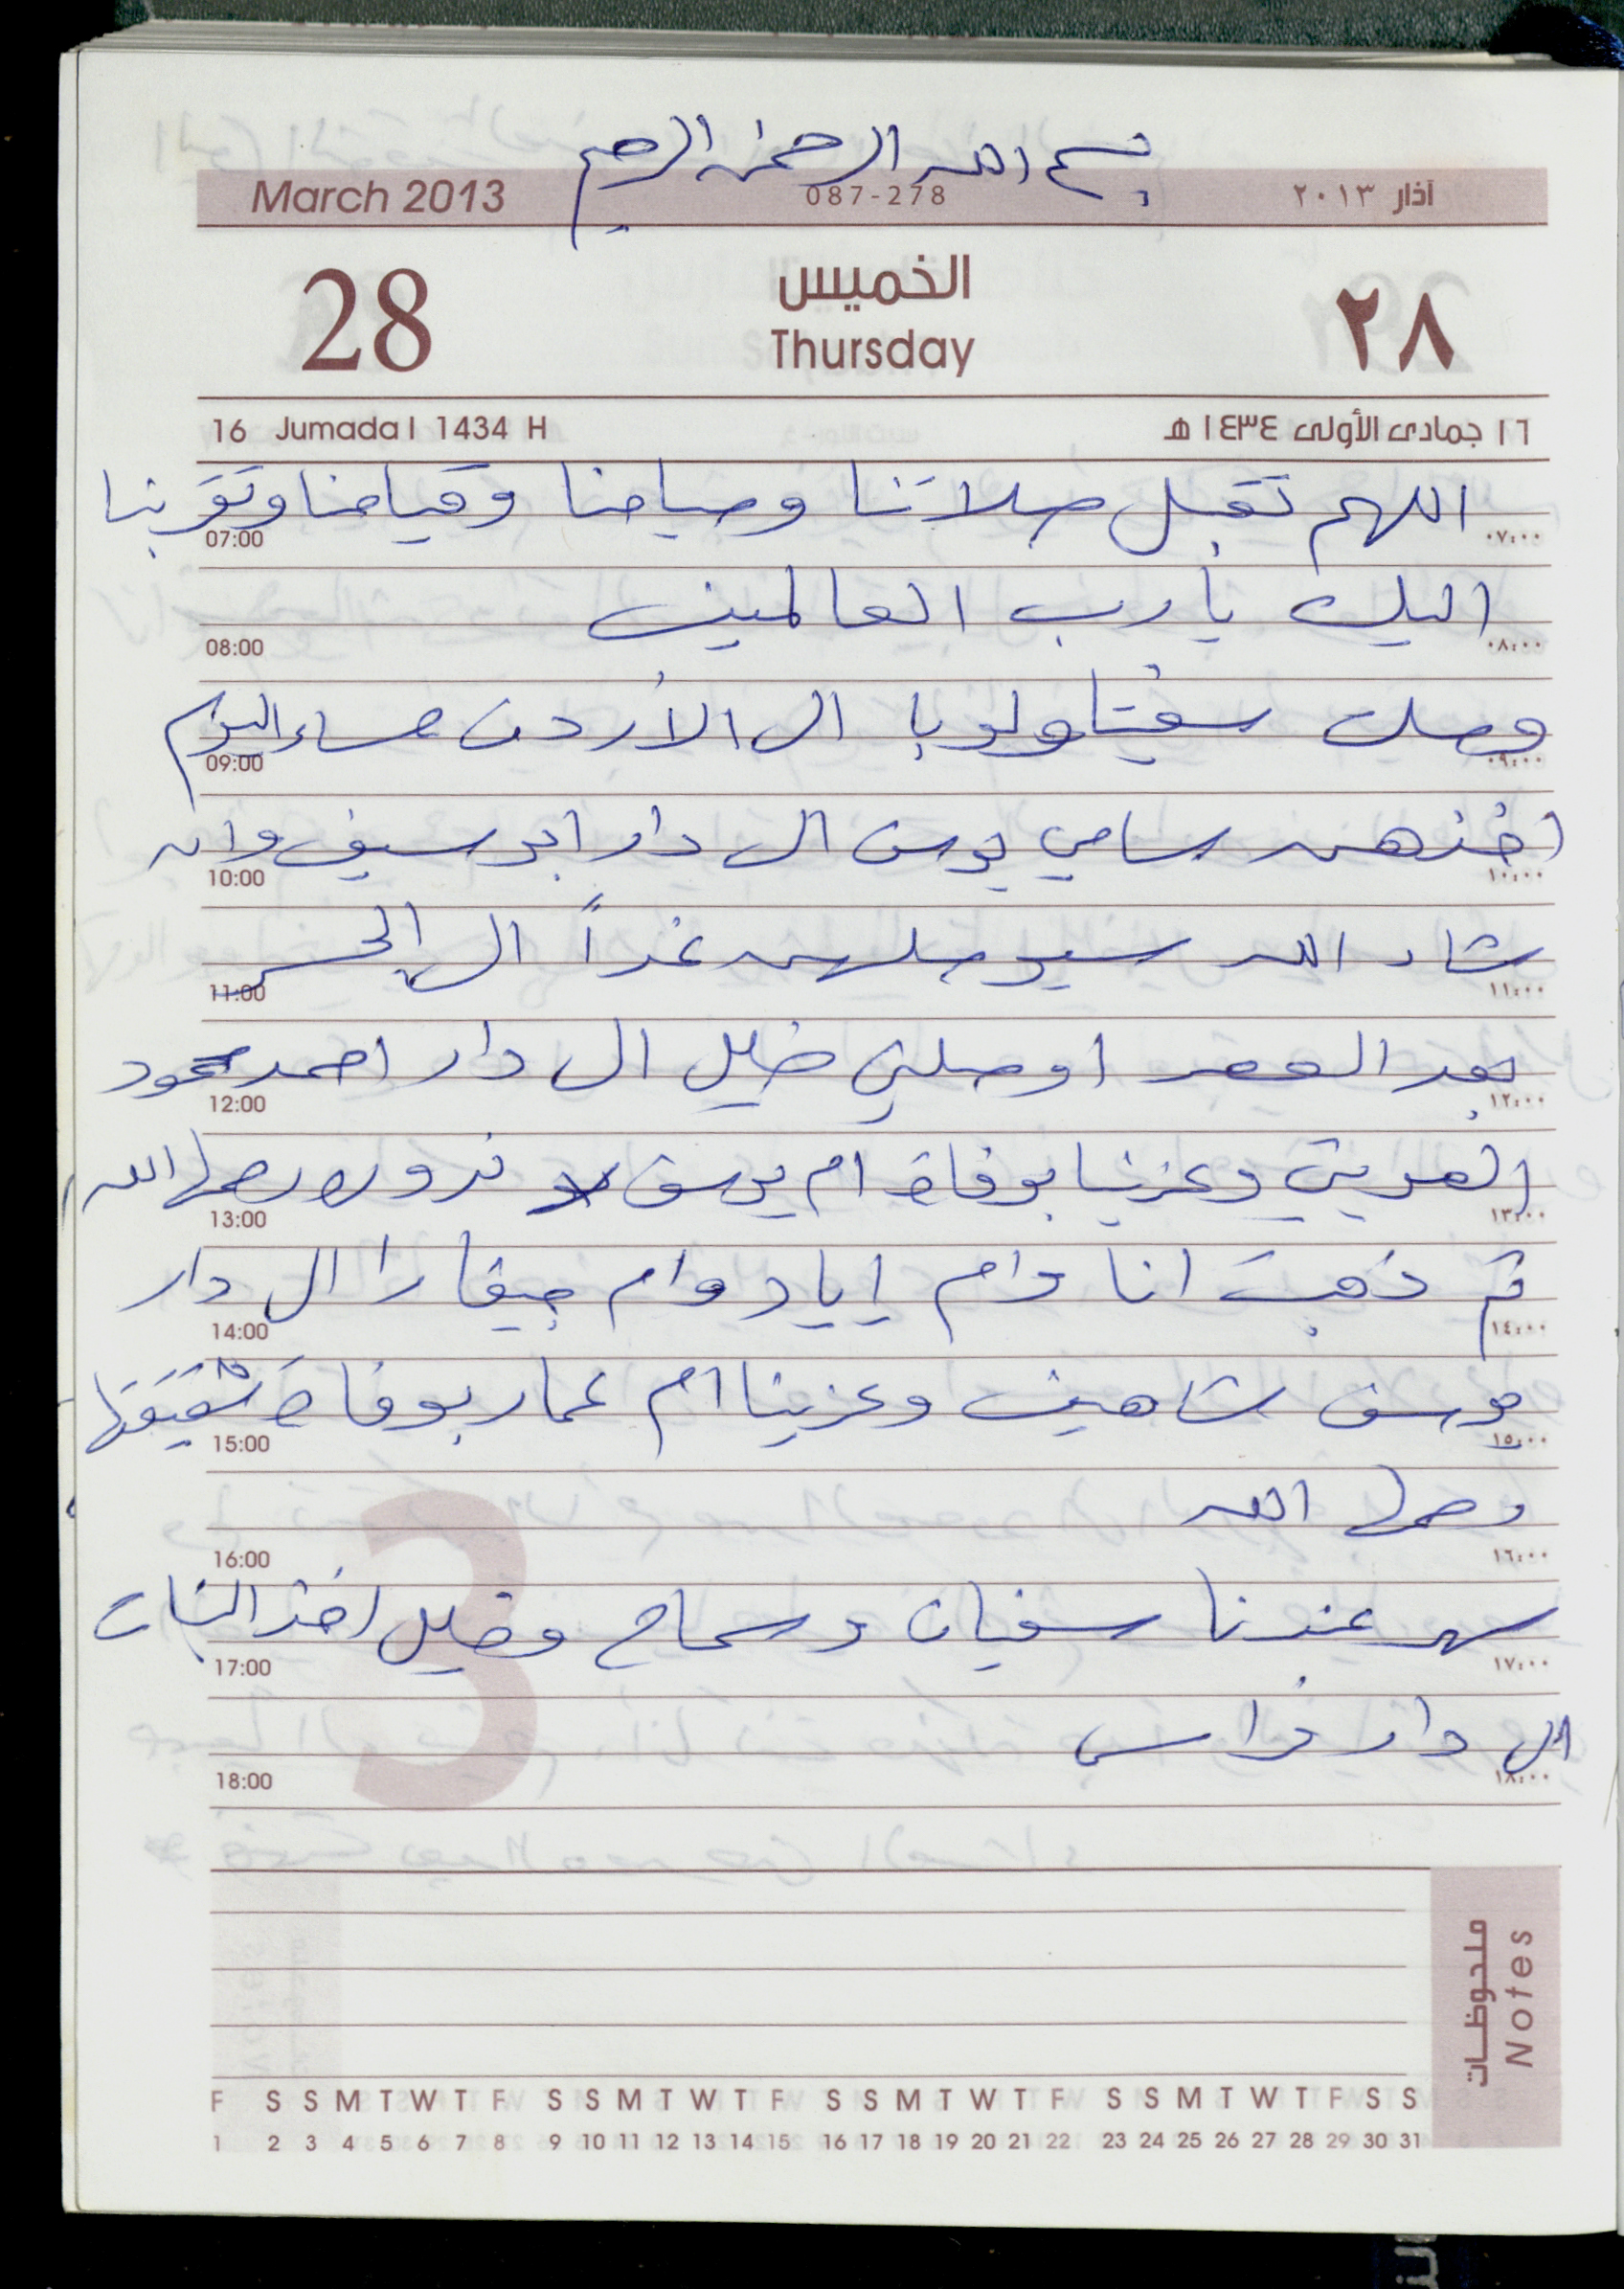 بسم الله الرحمن الرحيم
March 2013 087-278 آذار ٢٠١٣
28 الخميس ٢٨
Thursday
16 Jumada I 1434 H ١٦ جمادى الأولى ١٤٣٤ هـ
اللهم تقبل صلاتنا وصيامنا وقيامنا وتقربنا
07:00 ٠٧:٠٠
اليك يا رب العالمين
08:00 ٠٨:٠٠
وصلت ولوبا الى الأردن مساء اليوم
09:00 ٠٩:٠٠
اخذهن سامي يوسف الى دار ابو سيف وان
10:00 ١٠:٠٠
شاء الله سيوصلهن غداً الى الجسر
11:00 ١١:٠٠
بعد العصر اوصلني خليل الى دار احمد محمود
12:00 ١٢:٠٠
وعزينا بوفاة ام يوسف رحمها الله
13:00 ١٣:٠٠
ثم ذهبت انا وام اياد وام جيفارا الى دار
14:00 ١٤:٠٠
يوسف شاهين وعزينا ام عمار بوفاة شقيقتها
15:00 ١٥:٠٠
رحمها الله
16:00 ١٦:٠٠
سهر عندنا سفيان وسماح وخليل اخذ البنات
17:00 ١٧:٠٠
الى دار فراس
18:00 ١٨:٠٠
3
ملحوظات
Notes
F S S M T W T F S S M T W T F S S M T W T F S S M T W T F S S
1 2 3 4 5 6 7 8 9 10 11 12 13 14 15 16 17 18 19 20 21 22 23 24 25 26 27 28 29 30 31